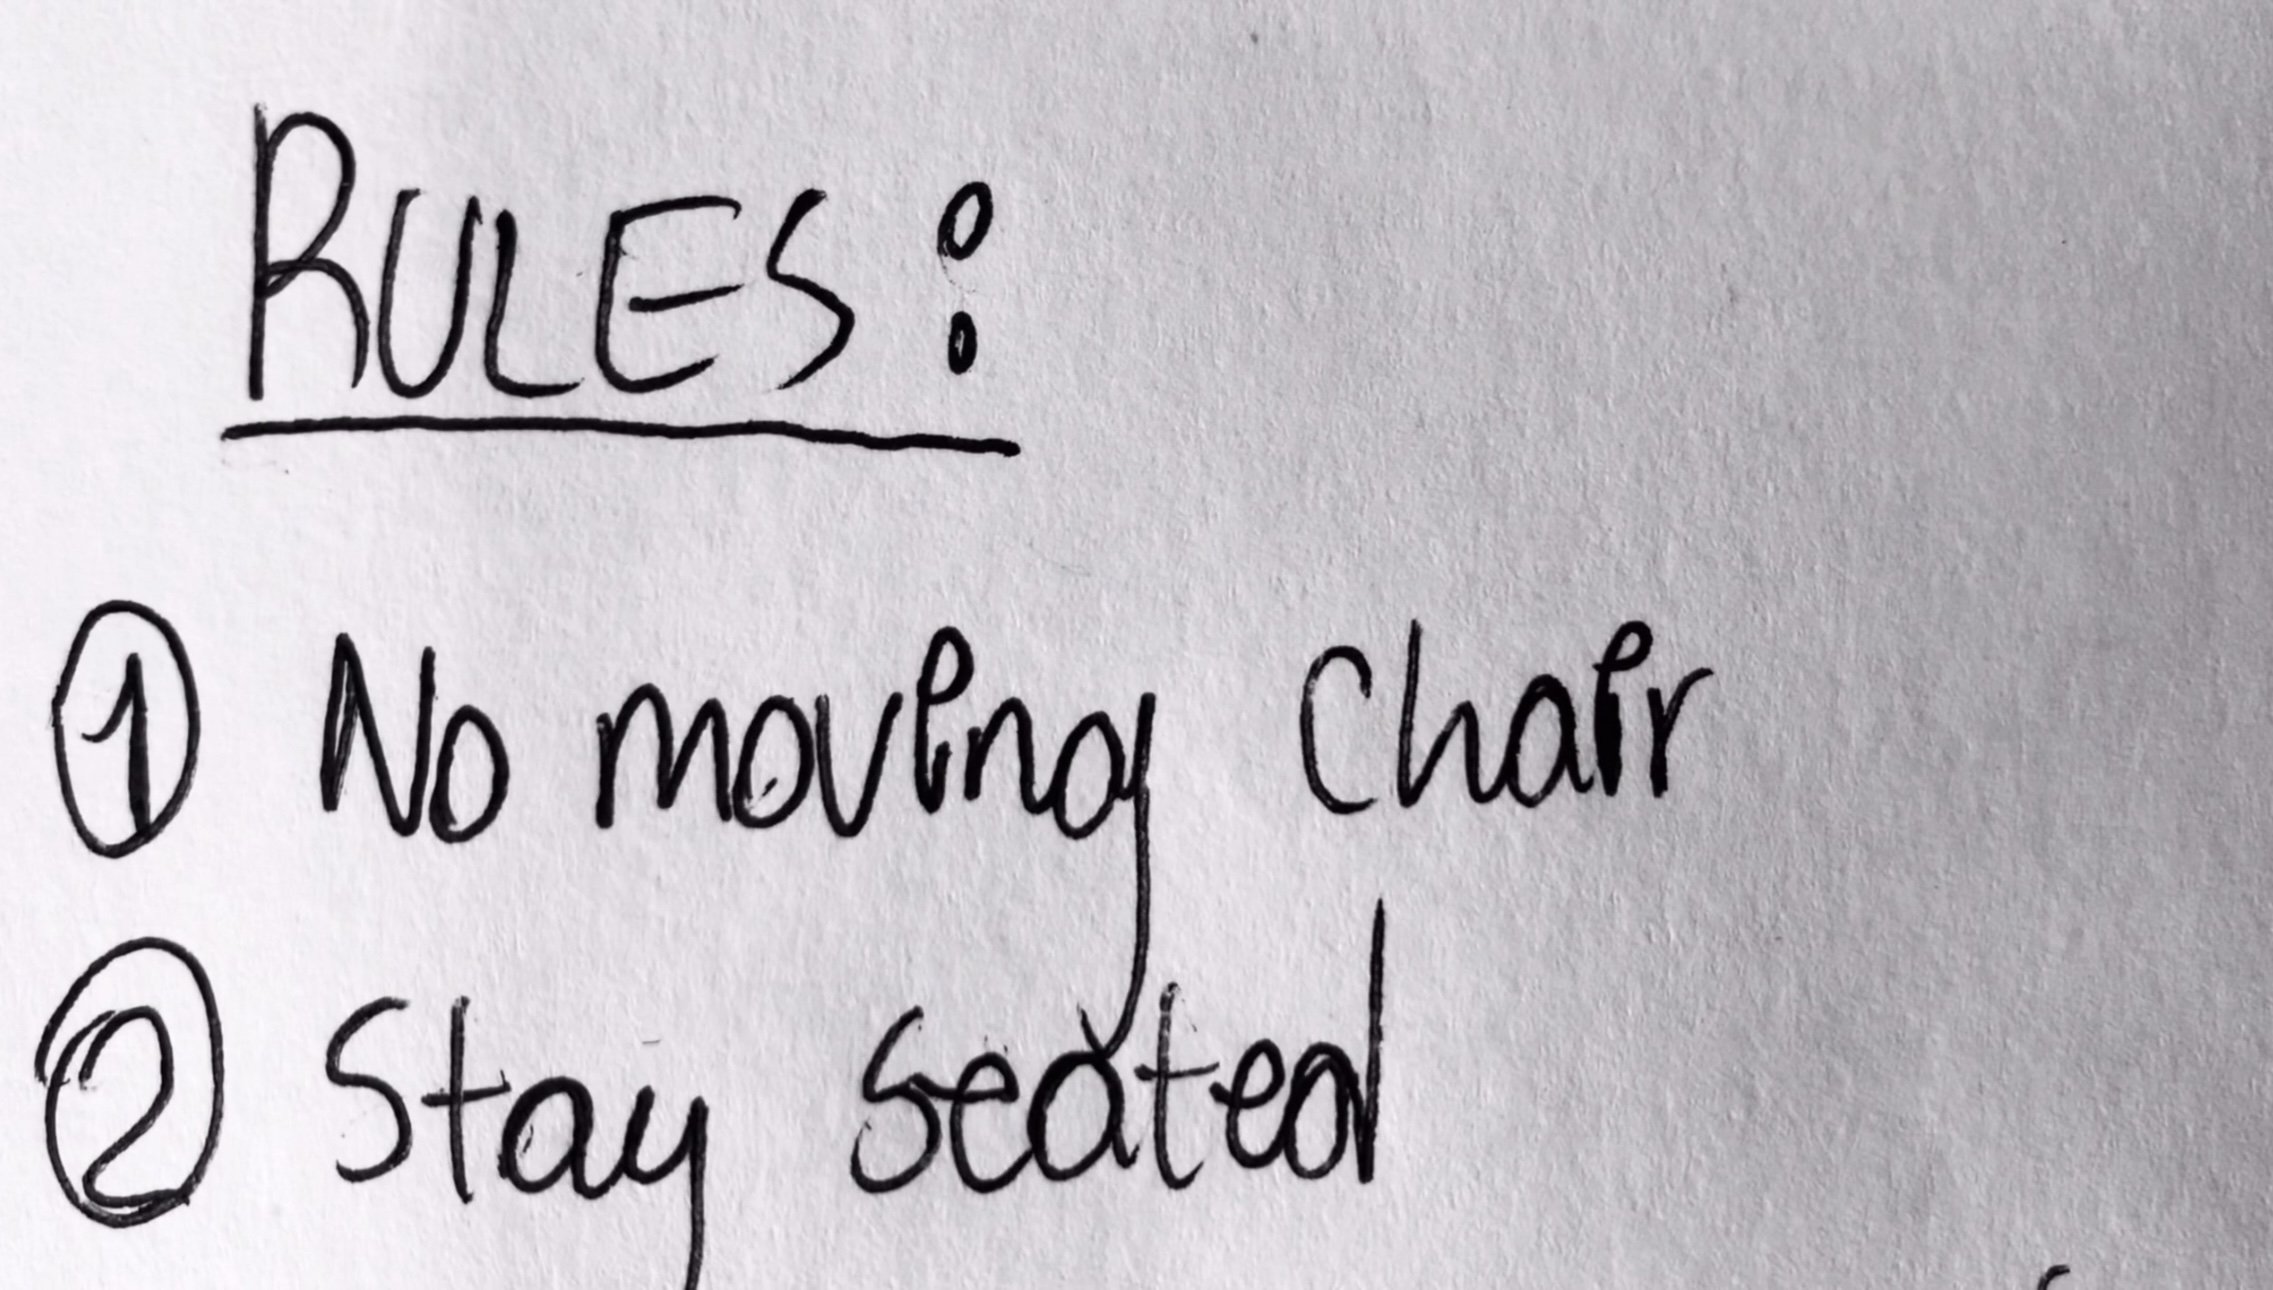 RULES:
① No moving chair
② Stay seated